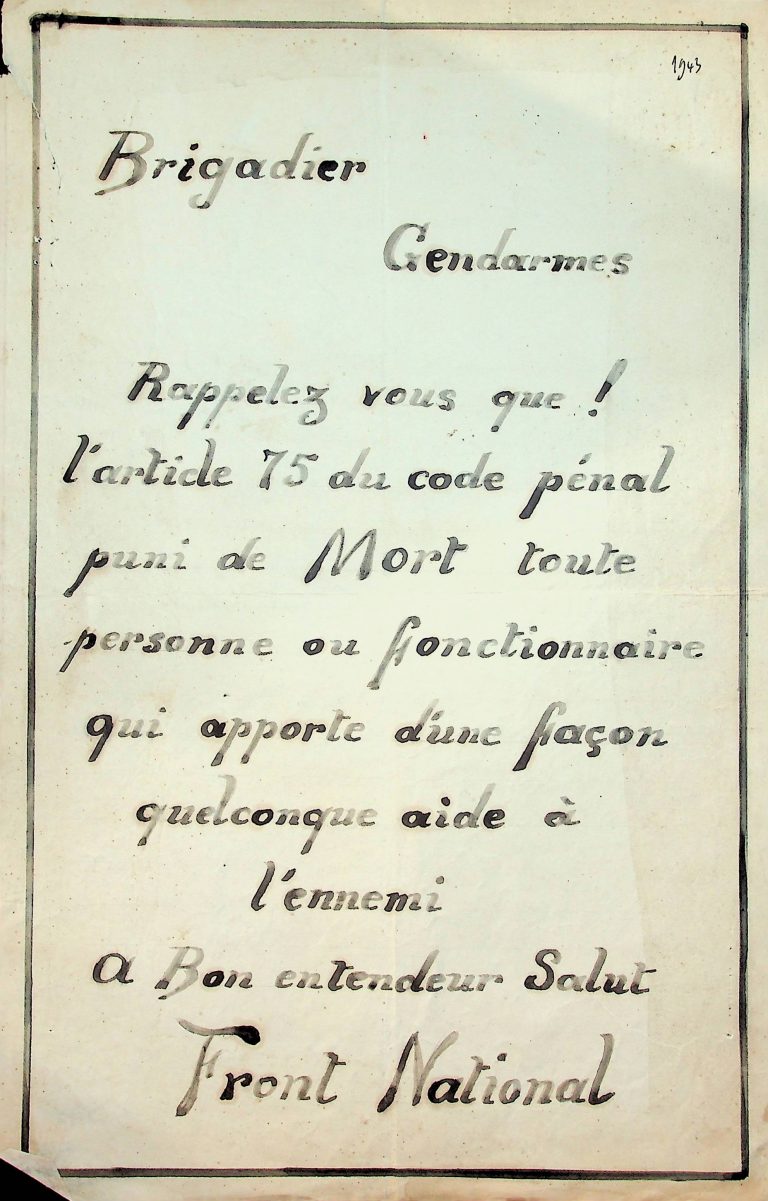 1943
Brigadier
Gendarmes
Rappelez vous que !
l'article 75 du code pénal
puni de Mort toute
personne ou fonctionnaire
qui apporte d'une façon
quelconque aide à
l'ennemi
a Bon entendeur Salut
Front National